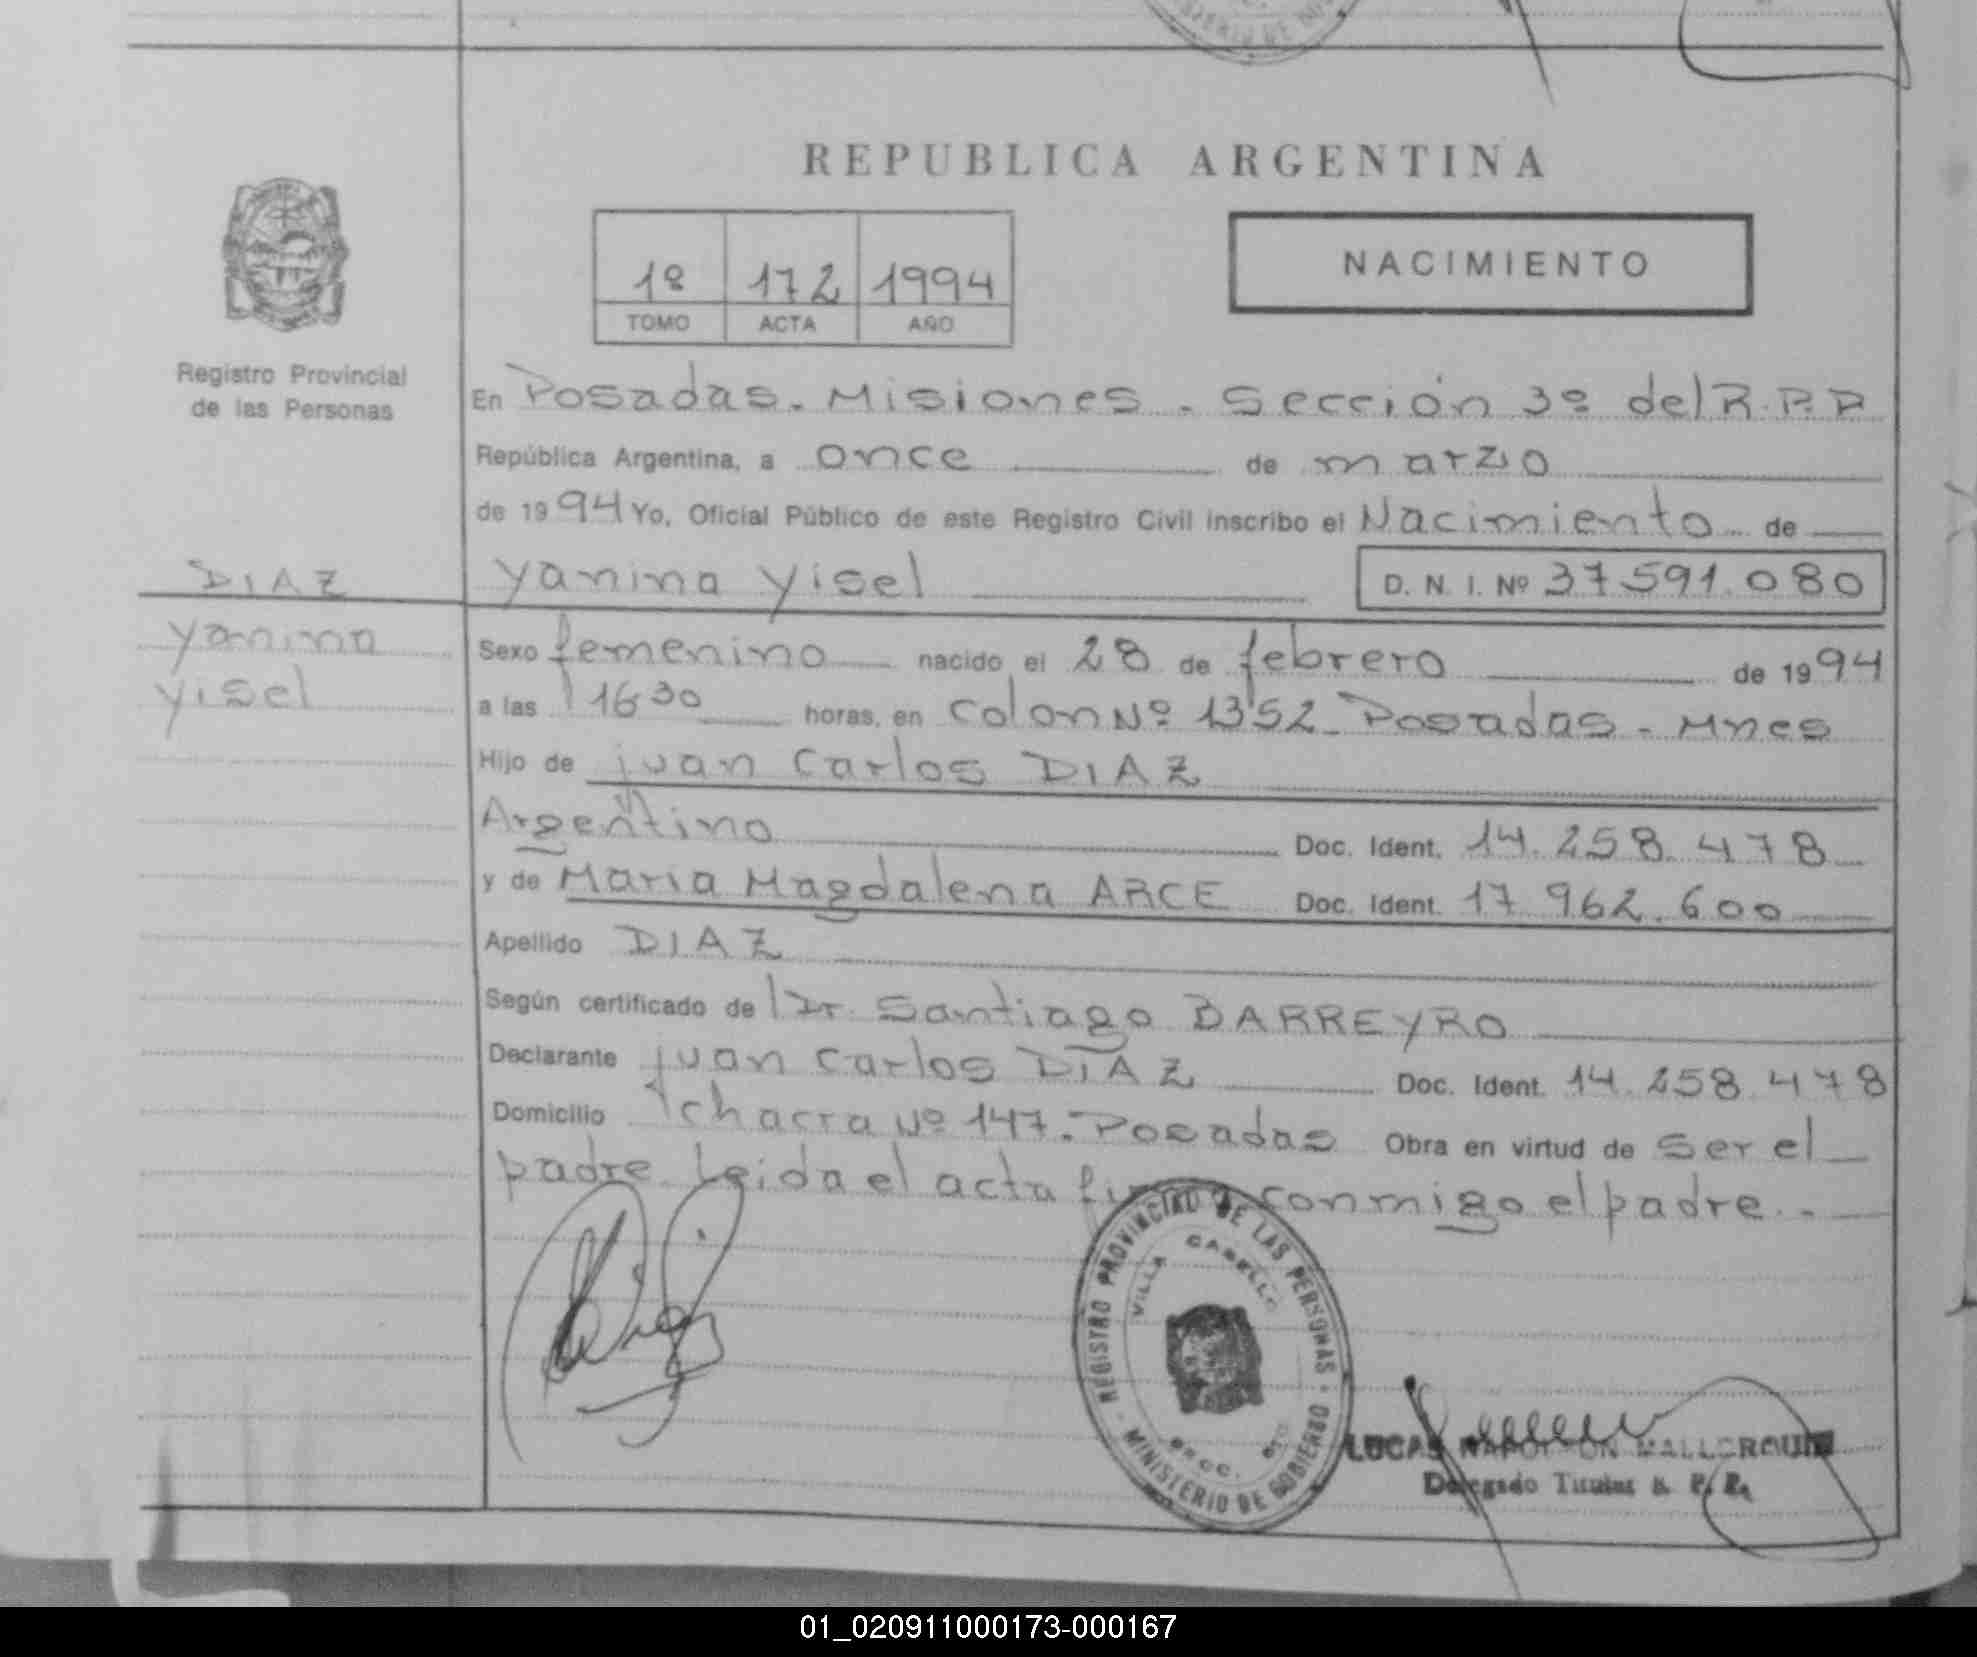 REPUBLICA ARGENTINA
1º 172 1994
TOMO ACTA AÑO
NACIMIENTO
Registro Provincial
de las Personas
En Posadas. Misiones. Sección 3º del R.P.P
República Argentina, a once de marzo
de 1994 Yo, Oficial Público de este Registro Civil inscribo el Nacimiento de
DIAZ
Yanina Yisel
D. N. I. Nº 37.591.080
Yanina
Yisel
Sexo femenino nacido el 28 de febrero de 1994
a las 16 30 horas, en Colon Nº 1352 - Posadas - Mnes
Hijo de Juan Carlos DIAZ
Argentino Doc. Ident. 14.258.478
y de Maria Magdalena ARCE Doc. Ident. 17.962.600
Apellido DIAZ
Según certificado de Dr. Santiago BARREYRO
Declarante Juan Carlos DIAZ Doc. Ident. 14.258.478
Domicilio chacra Nº 147. Posadas Obra en virtud de ser el
padre. Leida el acta firma conmigo el padre.-
REGISTRO PROVINCIAL DE LAS PERSONAS
MINISTERIO DE GOBIERNO
VILLA CABELLO
LUCAS NAPOLEON MALLORQUIN
Delegado Titular R. P. P.
01_020911000173-000167